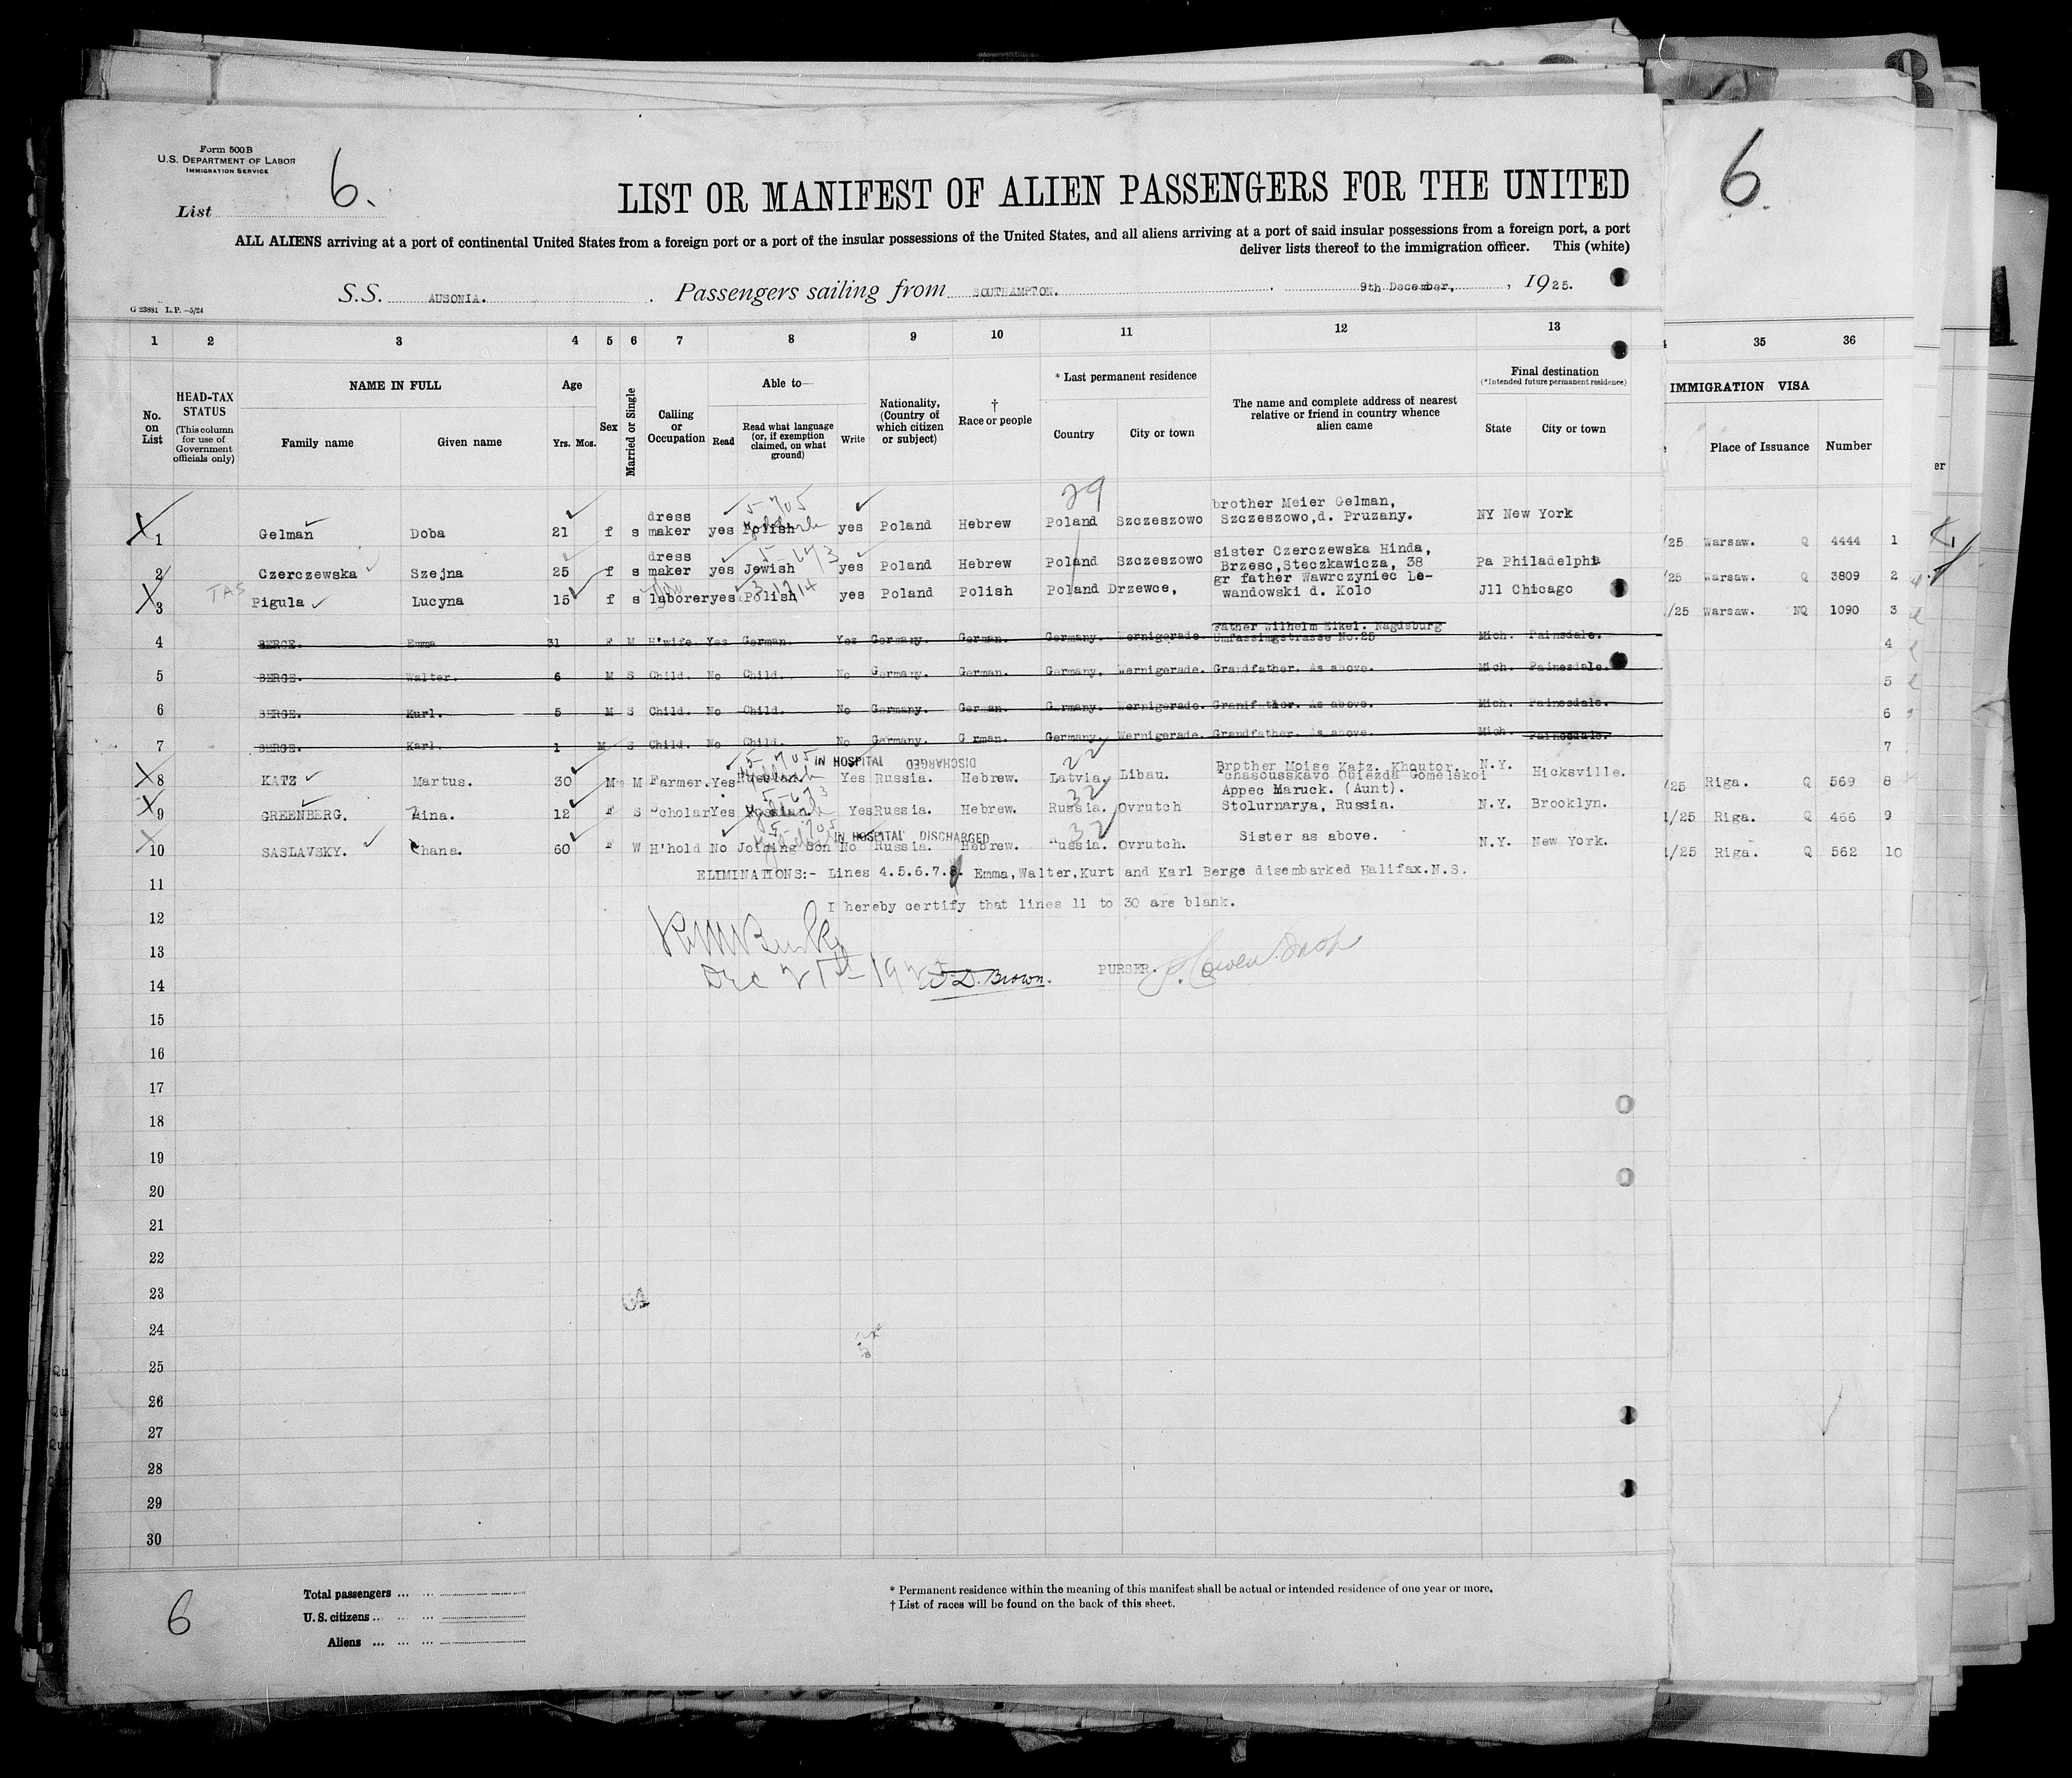 Form 500B
U.S. DEPARTMENT OF LABOR
IMMIGRATION SERVICE
List 6.
6
LIST OR MANIFEST OF ALIEN PASSENGERS FOR THE UNITED
ALL ALIENS arriving at a port of continental United States from a foreign port or a port of the insular possessions of the United States, and all aliens arriving at a port of said insular possessions from a foreign port, a port
deliver lists thereof to the immigration officer. This (white)
S.S. AUSONIA. Passengers sailing from SOUTHAMPTON. 9th December, 1925.
G 23881 L.P.—5/24
1 2 3 4 5 6 7 8 9 10 11 12 13 35 36
No. on List
HEAD-TAX STATUS (This column for use of Government officials only)
NAME IN FULL
Family name Given name
Age
Yrs. Mos.
Sex
Married or Single
Calling or Occupation
Able to—
Read
Read what language (or, if exemption claimed, on what ground)
Write
Nationality, (Country of which citizen or subject)
† Race or people
* Last permanent residence
Country City or town
The name and complete address of nearest relative or friend in country whence alien came
Final destination
(*Intended future permanent residence)
State City or town
IMMIGRATION VISA
Place of Issuance Number
29
5-705
1 Gelman Doba 21 f s dress maker yes Polish yes Poland Hebrew Poland Szczeszowo brother Meier Gelman, Szczeszowo,d. Pruzany. NY New York /25 Warsaw. Q 4444 1
2 Czerczewska Szejna 25 f s dress maker yes Jewish yes Poland Hebrew Poland Szczeszowo sister Czerczewska Hinda, Brzesc,Steczkawicza, 38 Pa Philadelphia /25 Warsaw. Q 3809 2
TAS
3 Pigula Lucyna 15 f s laborer yes Polish yes Poland Polish Poland Drzewce, gr father Wawrczyniec Le-wandowski d. Kolo Jll Chicago /25 Warsaw. NQ 1090 3
4 BERGE. Emma 31 F M H'wife. Yes German. Yes Germany. German. Germany. Wernigerade. Father Wilhelm Eikel. Magdsburg Umfassingstrasse No.25 Mich. Painsdale. 4
5 BERGE. Walter. 6 M S Child. No Child. No Germany. German. Germany. Wernigerade. Grandfather. As above. Mich. Painesdale. 5
6 BERGE. Kurl. 5 M S Child. No Child. No Germany. German. Germany. Wernigerade. Grandfather. As above. Mich. Painesdale. 6
7 BERGE. Karl. 1 M S Child. No Child. No Germany. G rman. Germany. Wernigerade. Grandfather. As above. Mich. Painesdale. 7
5-705 IN HOSPITAL DISCHARGED 22
8 KATZ Martus. 30 M M Farmer. Yes Russian. Yes Russia. Hebrew. Latvia. Libau. Brother Moise Katz. Khoutor. N.Y. Hicksville. /25 Riga. Q 569 8
32
9 GREENBERG. Zina. 12 F S Scholar Yes Russian. Yes Russia. Hebrew. Russia. Ovrutch Appec Maruck. (Aunt). Stolurnarya, Russia. N.Y. Brooklyn. 1/25 Riga. Q 466 9
IN HOSPITAL DISCHARGED 32
10 SASLAVSKY. Chana. 60 F W H'hold No Joining Son No Russia. Hebrew. Russia. Ovrutch. Sister as above. N.Y. New York. 1/25 Riga. Q 562 10
11 ELIMINATIONS:- Lines 4.5.6.7. Emma,Walter,Kurt and Karl Berge disembarked Halifax.N.S.
12 I hereby certify that lines 11 to 30 are blank.
13 PURSER.
14 W.D. Brown.
15
16
17
18
19
20
21
22
23
24
25
26
27
28
29
30
6
Total passengers ...
U.S. citizens ...
Aliens ...
* Permanent residence within the meaning of this manifest shall be actual or intended residence of one year or more.
† List of races will be found on the back of this sheet.